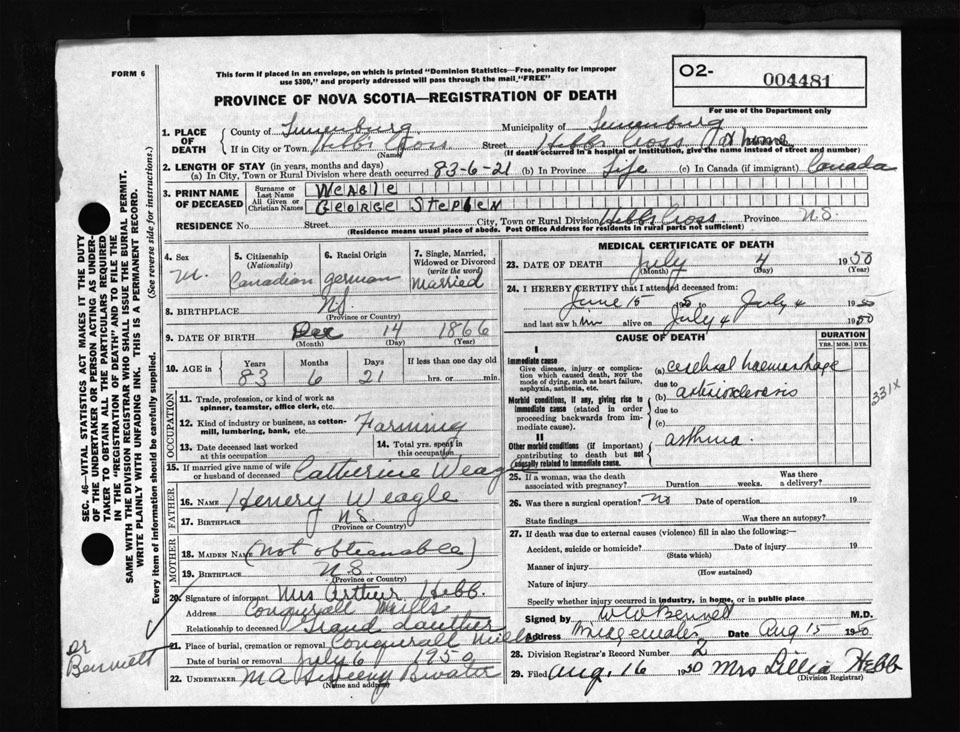 FORM 6
This form if placed in an envelope, on which is printed "Dominion Statistics—Free, penalty for improper
use $300," and properly addressed will pass through the mail "FREE"
O2- 004481
For use of the Department only
PROVINCE OF NOVA SCOTIA—REGISTRATION OF DEATH
1. PLACE OF DEATH
County of Lunenburg Municipality of Lunenburg
If in City or Town Hebb's Cross Street Hebbs Cross (at home
(Name) (If death occurred in a hospital or institution, give the name instead of street and number)
2. LENGTH OF STAY (in years, months and days)
(a) In City, Town or Rural Division where death occurred 83-6-21 (b) In Province Life (c) In Canada (if immigrant) Canada
3. PRINT NAME OF DECEASED
Surname or Last Name WEAGLE
All Given or Christian Names GEORGE STEPHEN
RESIDENCE No. Street City, Town or Rural Division Hebb's Cross Province N.S.
(Residence means usual place of abode. Post Office Address for residents in rural parts not sufficient)
4. Sex M.
5. Citizenship (Nationality) Canadian
6. Racial Origin german
7. Single, Married, Widowed or Divorced (write the word) Married
8. BIRTHPLACE N.S.
(Province or Country)
9. DATE OF BIRTH Dec 14 1866
(Month) (Day) (Year)
10. AGE in Years Months Days If less than one day old
83 6 21 hrs. or min.
OCCUPATION
11. Trade, profession, or kind of work as
spinner, teamster, office clerk, etc.
12. Kind of industry or business, as cotton-
mill, lumbering, bank, etc. Farming
13. Date deceased last worked at this occupation
14. Total yrs. spent in this occupation
15. If married give name of wife or husband of deceased Catherine Weagle
FATHER
16. NAME Henery Weagle
17. BIRTHPLACE N.S.
(Province or Country)
MOTHER
18. MAIDEN NAME (not obtianable)
19. BIRTHPLACE N.S.
(Province or Country)
20. Signature of informant Mrs Arthur Hebb.
Address Conquerall Mills
Relationship to deceased Grand dauther
21. Place of burial, cremation or removal Conquerall Mills
Date of burial or removal July 6 1950
22. UNDERTAKER M A Sweeny Bwater
(Name and address)
MEDICAL CERTIFICATE OF DEATH
23. DATE OF DEATH July 4 1950
(Month) (Day) (Year)
24. I HEREBY CERTIFY that I attended deceased from:
June 15 to July 4 1950
and last saw him alive on July 4 1950
CAUSE OF DEATH
DURATION
YRS. MOS. DYS.
I
Immediate cause
Give disease, injury or complica-
tion which caused death, not the
mode of dying, such as heart failure,
asphyxia, asthenia, etc.
(a) cerebral haemorrhage
due to
Morbid conditions, if any, giving rise to
immediate cause (stated in order
proceeding backwards from im-
mediate cause).
(b) arteriosclerosis
due to
(c)
II
Other morbid conditions (if important)
contributing to death but not
causally related to immediate cause.
asthma.
331X
25. If a woman, was the death associated with pregnancy? Duration weeks. Was there a delivery?
26. Was there a surgical operation? No Date of operation 19
State findings Was there an autopsy?
27. If death was due to external causes (violence) fill in also the following:—
Accident, suicide or homicide? Date of injury 19
(State which)
Manner of injury
(How sustained)
Nature of injury
Specify whether injury occurred in industry, in home, or in public place
Signed by W W Bennett M.D.
Address Bridgewater Date Aug 15 1950
28. Division Registrar's Record Number 2
29. Filed Aug. 16 1950 Mrs Lillia Hebb
(Division Registrar)
SEC. 46—VITAL STATISTICS ACT MAKES IT THE DUTY
OF THE UNDERTAKER OR PERSON ACTING AS UNDER-
TAKER TO OBTAIN ALL THE PARTICULARS REQUIRED
IN THE "REGISTRATION OF DEATH" AND TO FILE THE
SAME WITH THE DIVISION REGISTRAR WHO SHALL ISSUE THE BURIAL PERMIT.
WRITE PLAINLY WITH UNFADING INK. THIS IS A PERMANENT RECORD.
Every item of information should be carefully supplied. (See reverse side for instructions.)
Dr Bennett